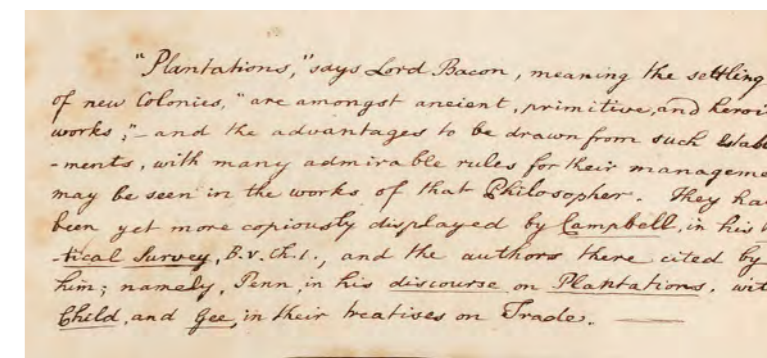 "Plantations," says Lord Bacon, meaning the settling
of new Colonies, "are amongst ancient, primitive, and heroi
works;" – and the advantages to be drawn from such Estab
-ments, with many admirable rules for their manageme
may be seen in the works of that Philosopher. They ha
been yet more copiously displayed by Campbell, in his
-tical Survey, B.V. Ch.1., and the authors there cited by
him; namely, Penn in his discourse on Plantations, wit
Child, and Gee, in their treatises on Trade. —